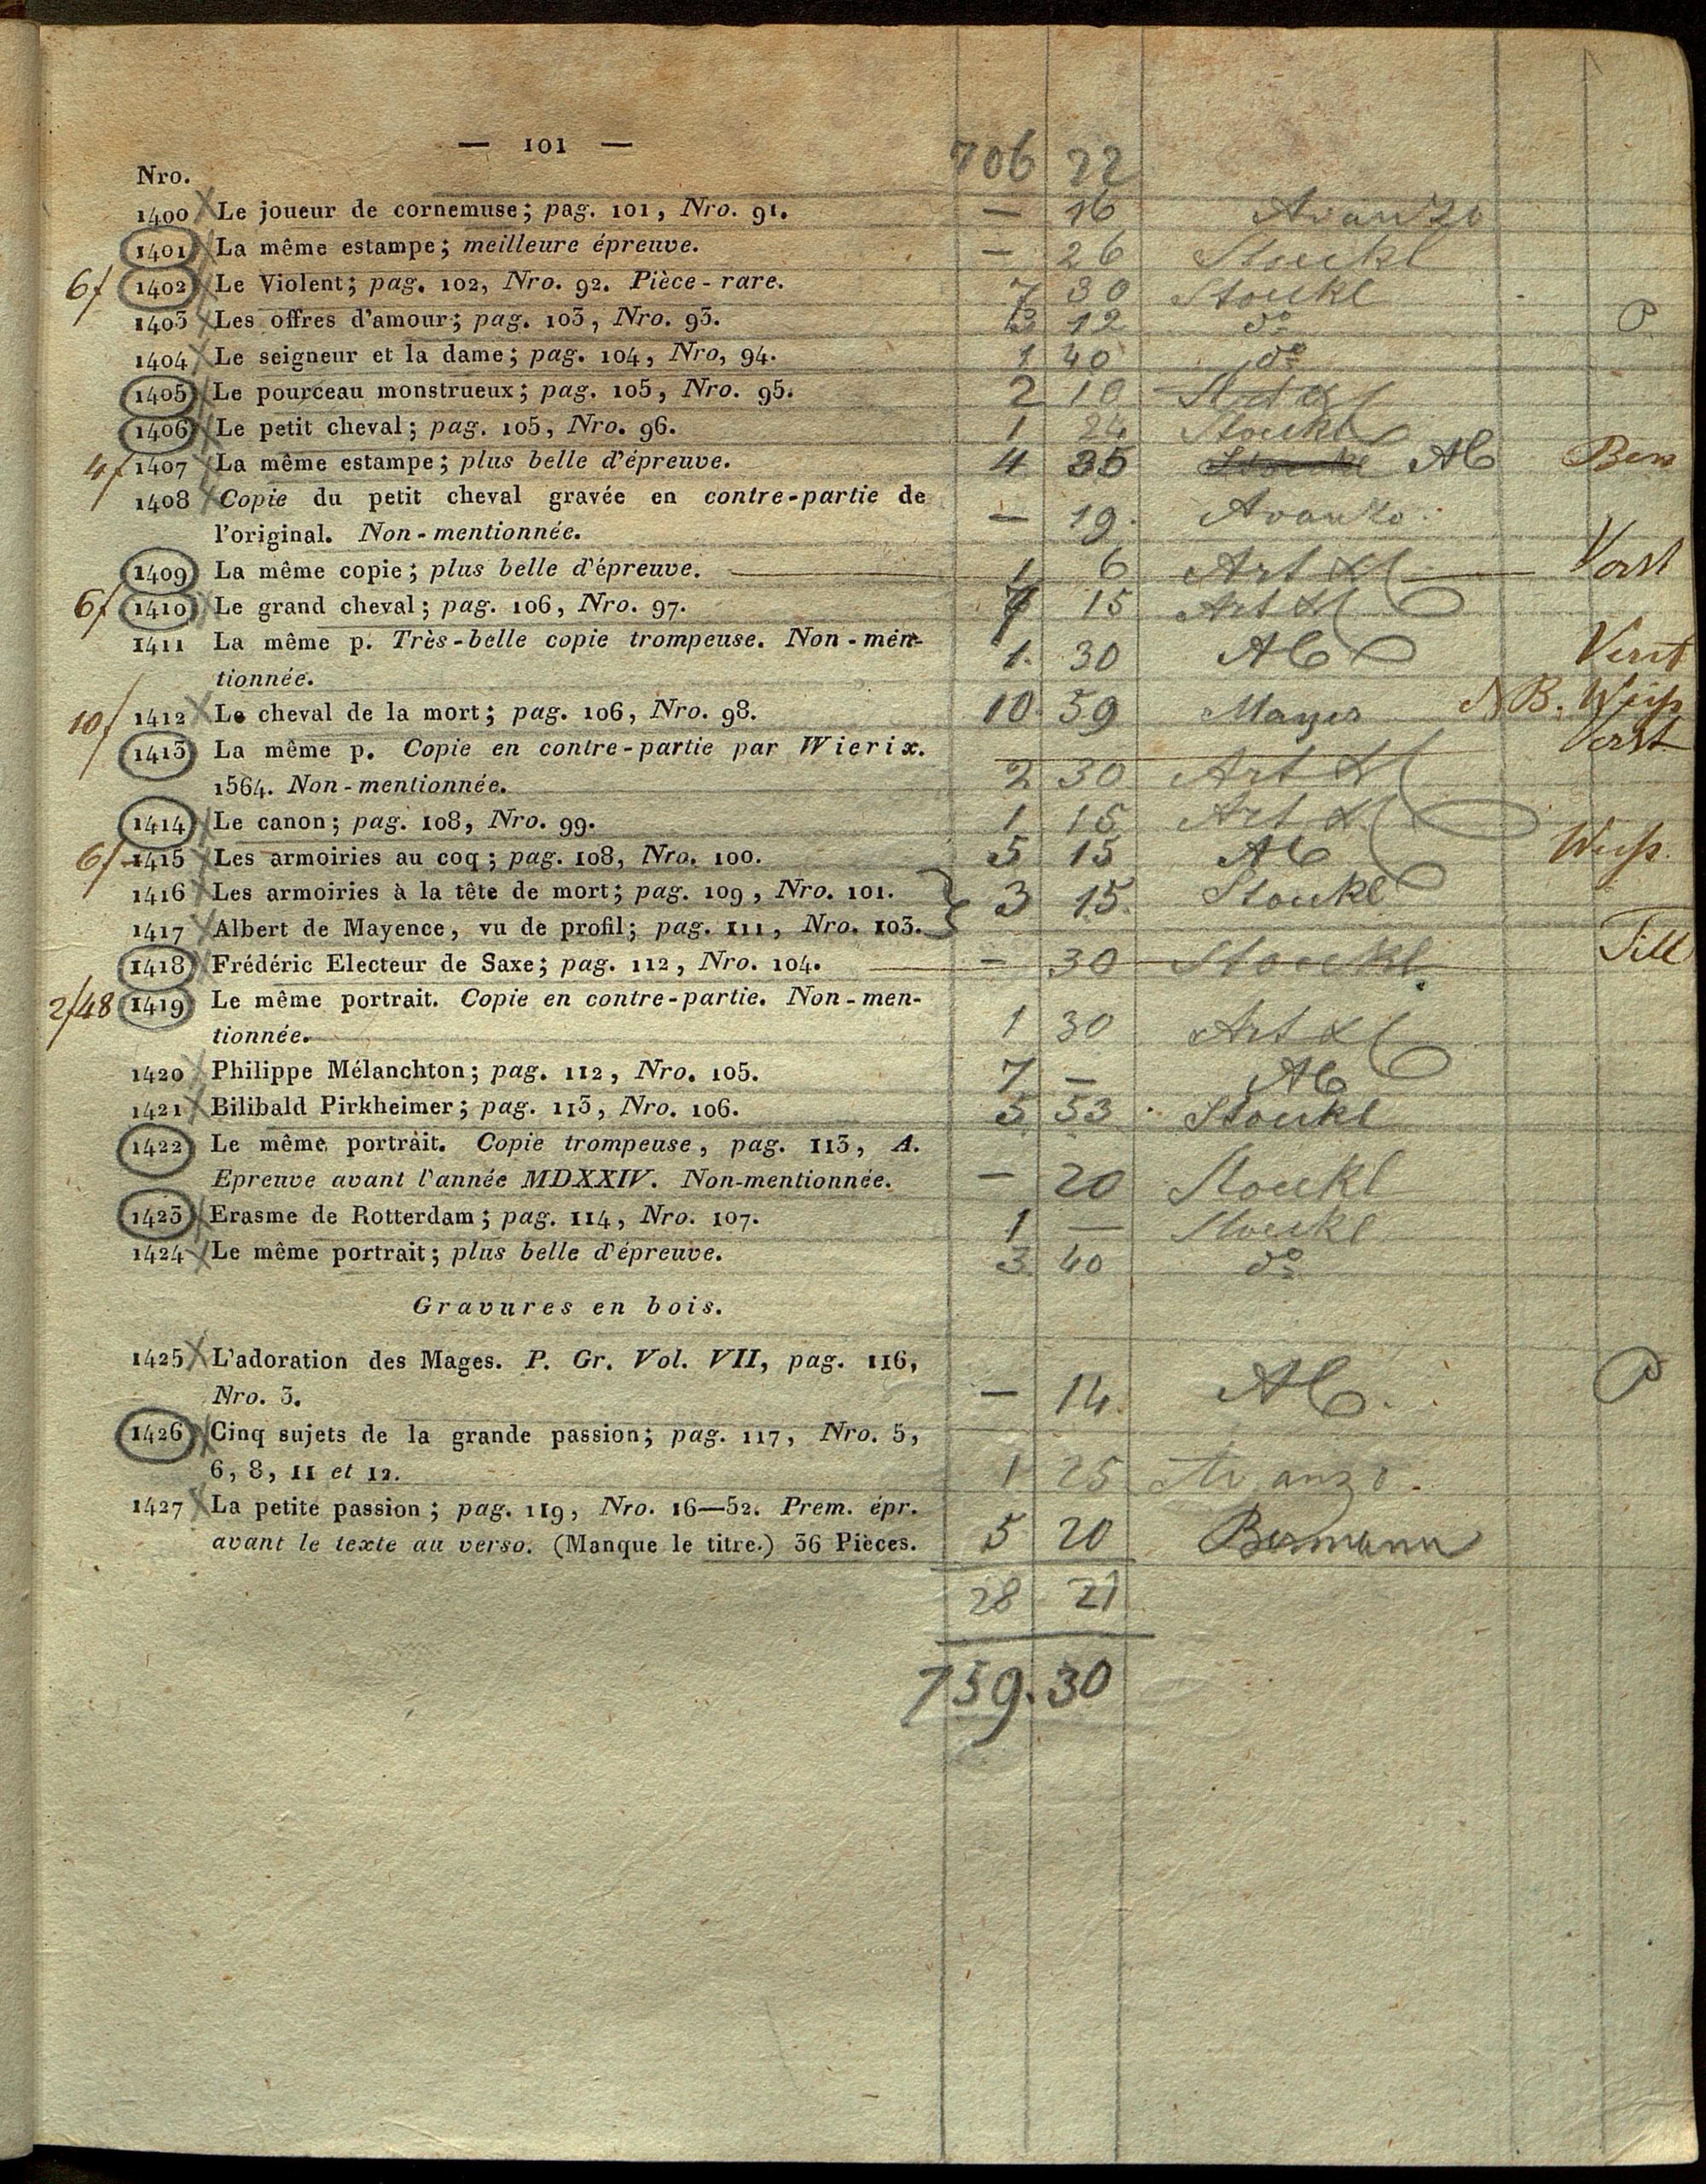 — 101 —
706 22
Nro.
1400 Le joueur de cornemuse; pag. 101, Nro. 91. — 16 Avanzo
1401 La même estampe; meilleure épreuve. — 26 Stoeckl
6f 1402 Le Violent; pag. 102, Nro. 92. Pièce-rare. 7 30 Stoeckl
1403 Les offres d'amour; pag. 103, Nro. 93. 12 do P
1404 Le seigneur et la dame; pag. 104, Nro, 94. 1 40 do
1405 Le pourceau monstrueux; pag. 105, Nro. 95. 2 10
1406 Le petit cheval; pag. 105, Nro. 96. 1 24 Stoeckl
4f 1407 La même estampe; plus belle d'épreuve. 4 35 Stoeckl AC Ben
1408 Copie du petit cheval gravée en contre-partie de
l'original. Non-mentionnée. — 19. Avanzo
1409 La même copie; plus belle d'épreuve. 1 6 Art Vorst
6f 1410 Le grand cheval; pag. 106, Nro. 97. 7 15 Art
1411 La même p. Très-belle copie trompeuse. Non-men-
tionnée. 1. 30 AC Verst
10f 1412 Le cheval de la mort; pag. 106, Nro. 98. 10. 59 Mayer NB. Weiss
1413 La même p. Copie en contre-partie par Wierix. Verst
1564. Non-mentionnée. 2 30 Art
1414 Le canon; pag. 108, Nro. 99. 1 15 Art
6f 1415 Les armoiries au coq; pag. 108, Nro. 100. 5 15 AC Weiss
1416 Les armoiries à la tête de mort; pag. 109, Nro. 101. 3 15. Stoeckl
1417 Albert de Mayence, vu de profil; pag. 111, Nro. 103.
1418 Frédéric Electeur de Saxe; pag. 112, Nro. 104. — 30 Stoeckl Till
2f48 1419 Le même portrait. Copie en contre-partie. Non-men-
tionnée. 1 30 Art
1420 Philippe Mélanchton; pag. 112, Nro. 105. 7 — AC
1421 Bilibald Pirkheimer; pag. 113, Nro. 106. 5 53 Stoeckl
1422 Le même portrait. Copie trompeuse, pag. 113, A.
Epreuve avant l'année MDXXIV. Non-mentionnée. — 20 Stoeckl
1423 Erasme de Rotterdam; pag. 114, Nro. 107. 1 — Stoeckl
1424 Le même portrait; plus belle d'épreuve. 3 40 do
Gravures en bois.
1425 L'adoration des Mages. P. Gr. Vol. VII, pag. 116,
Nro. 3. — 14. AC. P
1426 Cinq sujets de la grande passion; pag. 117, Nro. 5,
6, 8, 11 et 12. 1 25 Avanzo.
1427 La petite passion; pag. 119, Nro. 16—52. Prem. épr.
avant le texte au verso. (Manque le titre.) 36 Pièces. 5 20 Bermann
28 21
759.30